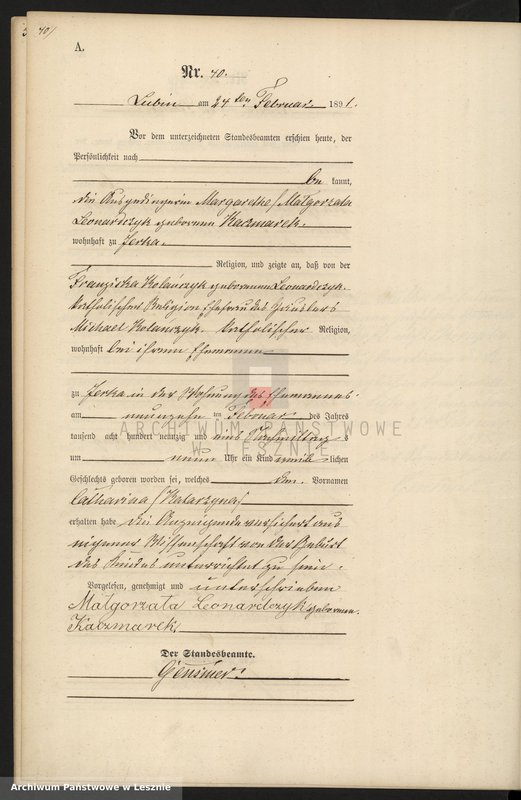 40/
A.
Nr. 40.
Lubin am 24ten Februar 1891.
Vor dem unterzeichneten Standesbeamten erschien heute, der
Persönlichkeit nach
be kannt,
die Ausgedingerin Margarethe/Małgorzata
Leonarczyk geborenen Kaczmarek.
wohnhaft zu Jerka.
Religion, und zeigte an, daß von der
Franziska Kolańczyk geborenen Leonardczyk.
katholischer Religion Ehefrau des Häuslers
Michael Kolanczyk. katholischer Religion,
wohnhaft bei ihrem Ehemanne
zu Jerka in der Wohnung des Ehemannes.
am neunzehn ten Februar des Jahres
tausend acht hundert neunzig und eins Vormittag s
um neun Uhr ein Kind weib lichen
Geschlechts geboren worden sei, welches den Vornamen
Catharina /Katarzyna/
erhalten habe die Anzeigende versichert aus
eigener Wissenschaft von der Geburt
des Kindes unterrichtet zu sein.
Vorgelesen, genehmigt und unterschrieben
Małgorzata Leonardczyk geboren.
Kaczmarek.
Der Standesbeamte.
Gensmer
ARCHIWUM PAŃSTWOWE
W LESZNIE
Archiwum Państwowe w Lesznie